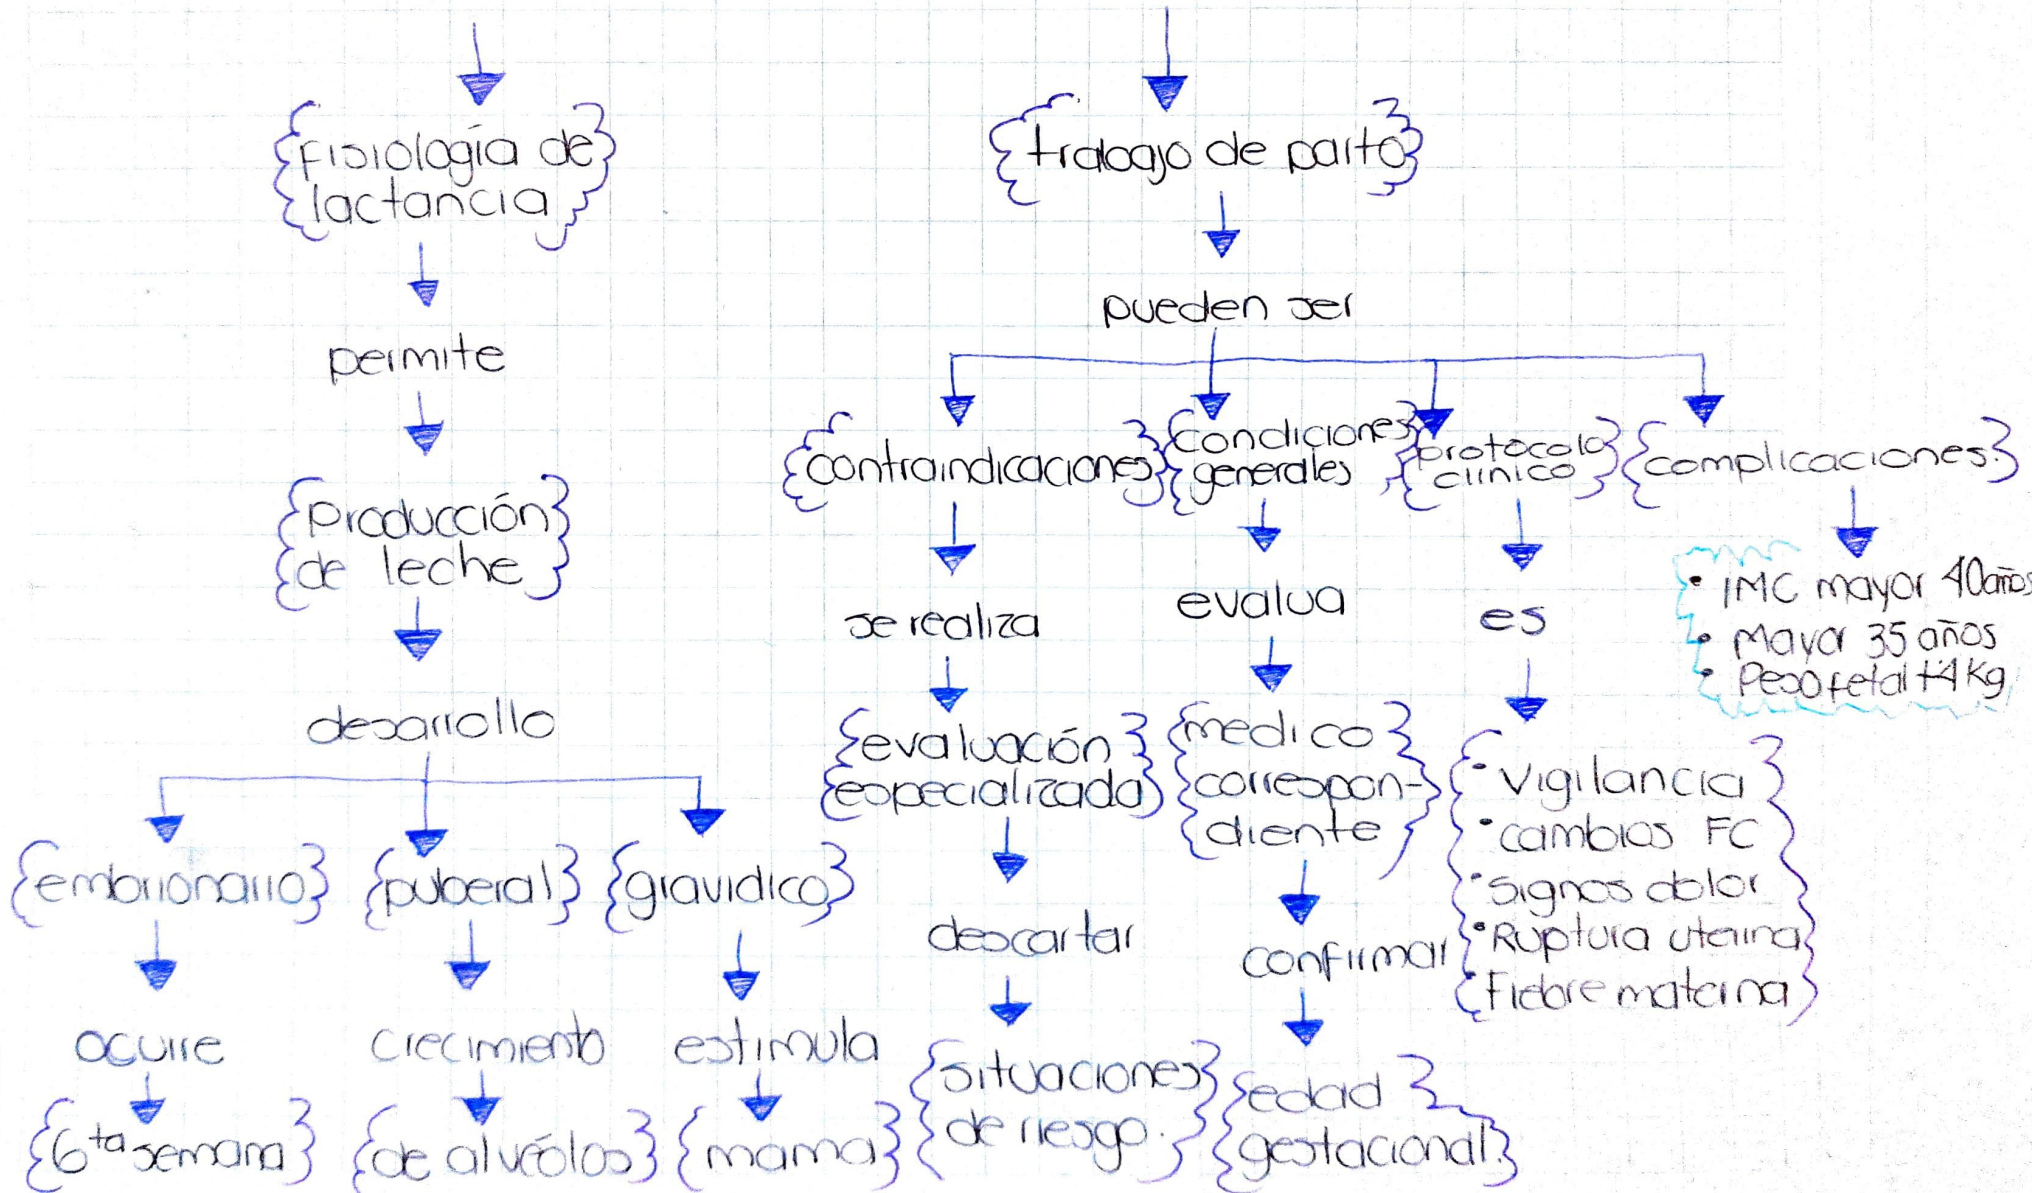 Fisiología de
lactancia
permite
Producción
de leche
desarrollo
embrionario
ocurre
6ta semana
puberal
crecimiento
de alvéolos
gravidico
estimula
mama
trabajo de parto
pueden ser
contraindicaciones
se realiza
evaluación
especializada
descartar
situaciones
de riesgo.
condiciones
generales
evalua
medico
correspon-
diente
confirmar
edad
gestacional.
protocolo
clinico
es
• Vigilancia
• cambios FC
• signos dolor
• Ruptura uterina
• Fiebre materna
complicaciones.
• IMC mayor 40años
• Mayor 35 años
• Peso fetal +4Kg